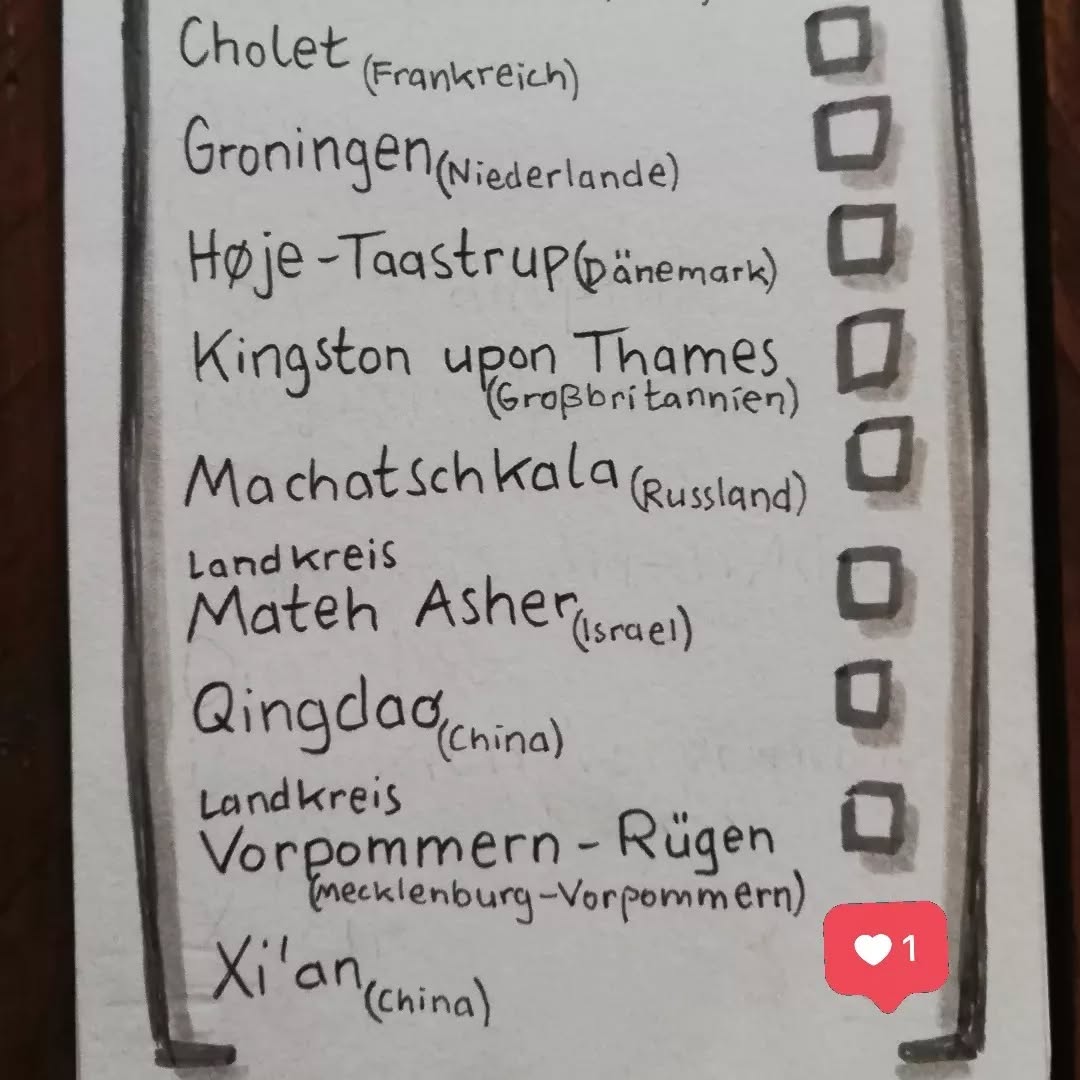 Cholet (Frankreich)
Groningen (Niederlande)
Høje-Taastrup (Dänemark)
Kingston upon Thames
(Großbritannien)
Machatschkala (Russland)
Landkreis
Mateh Asher (Israel)
Qingdao (China)
Landkreis
Vorpommern-Rügen
(Mecklenburg-Vorpommern)
Xi'an (China)
1